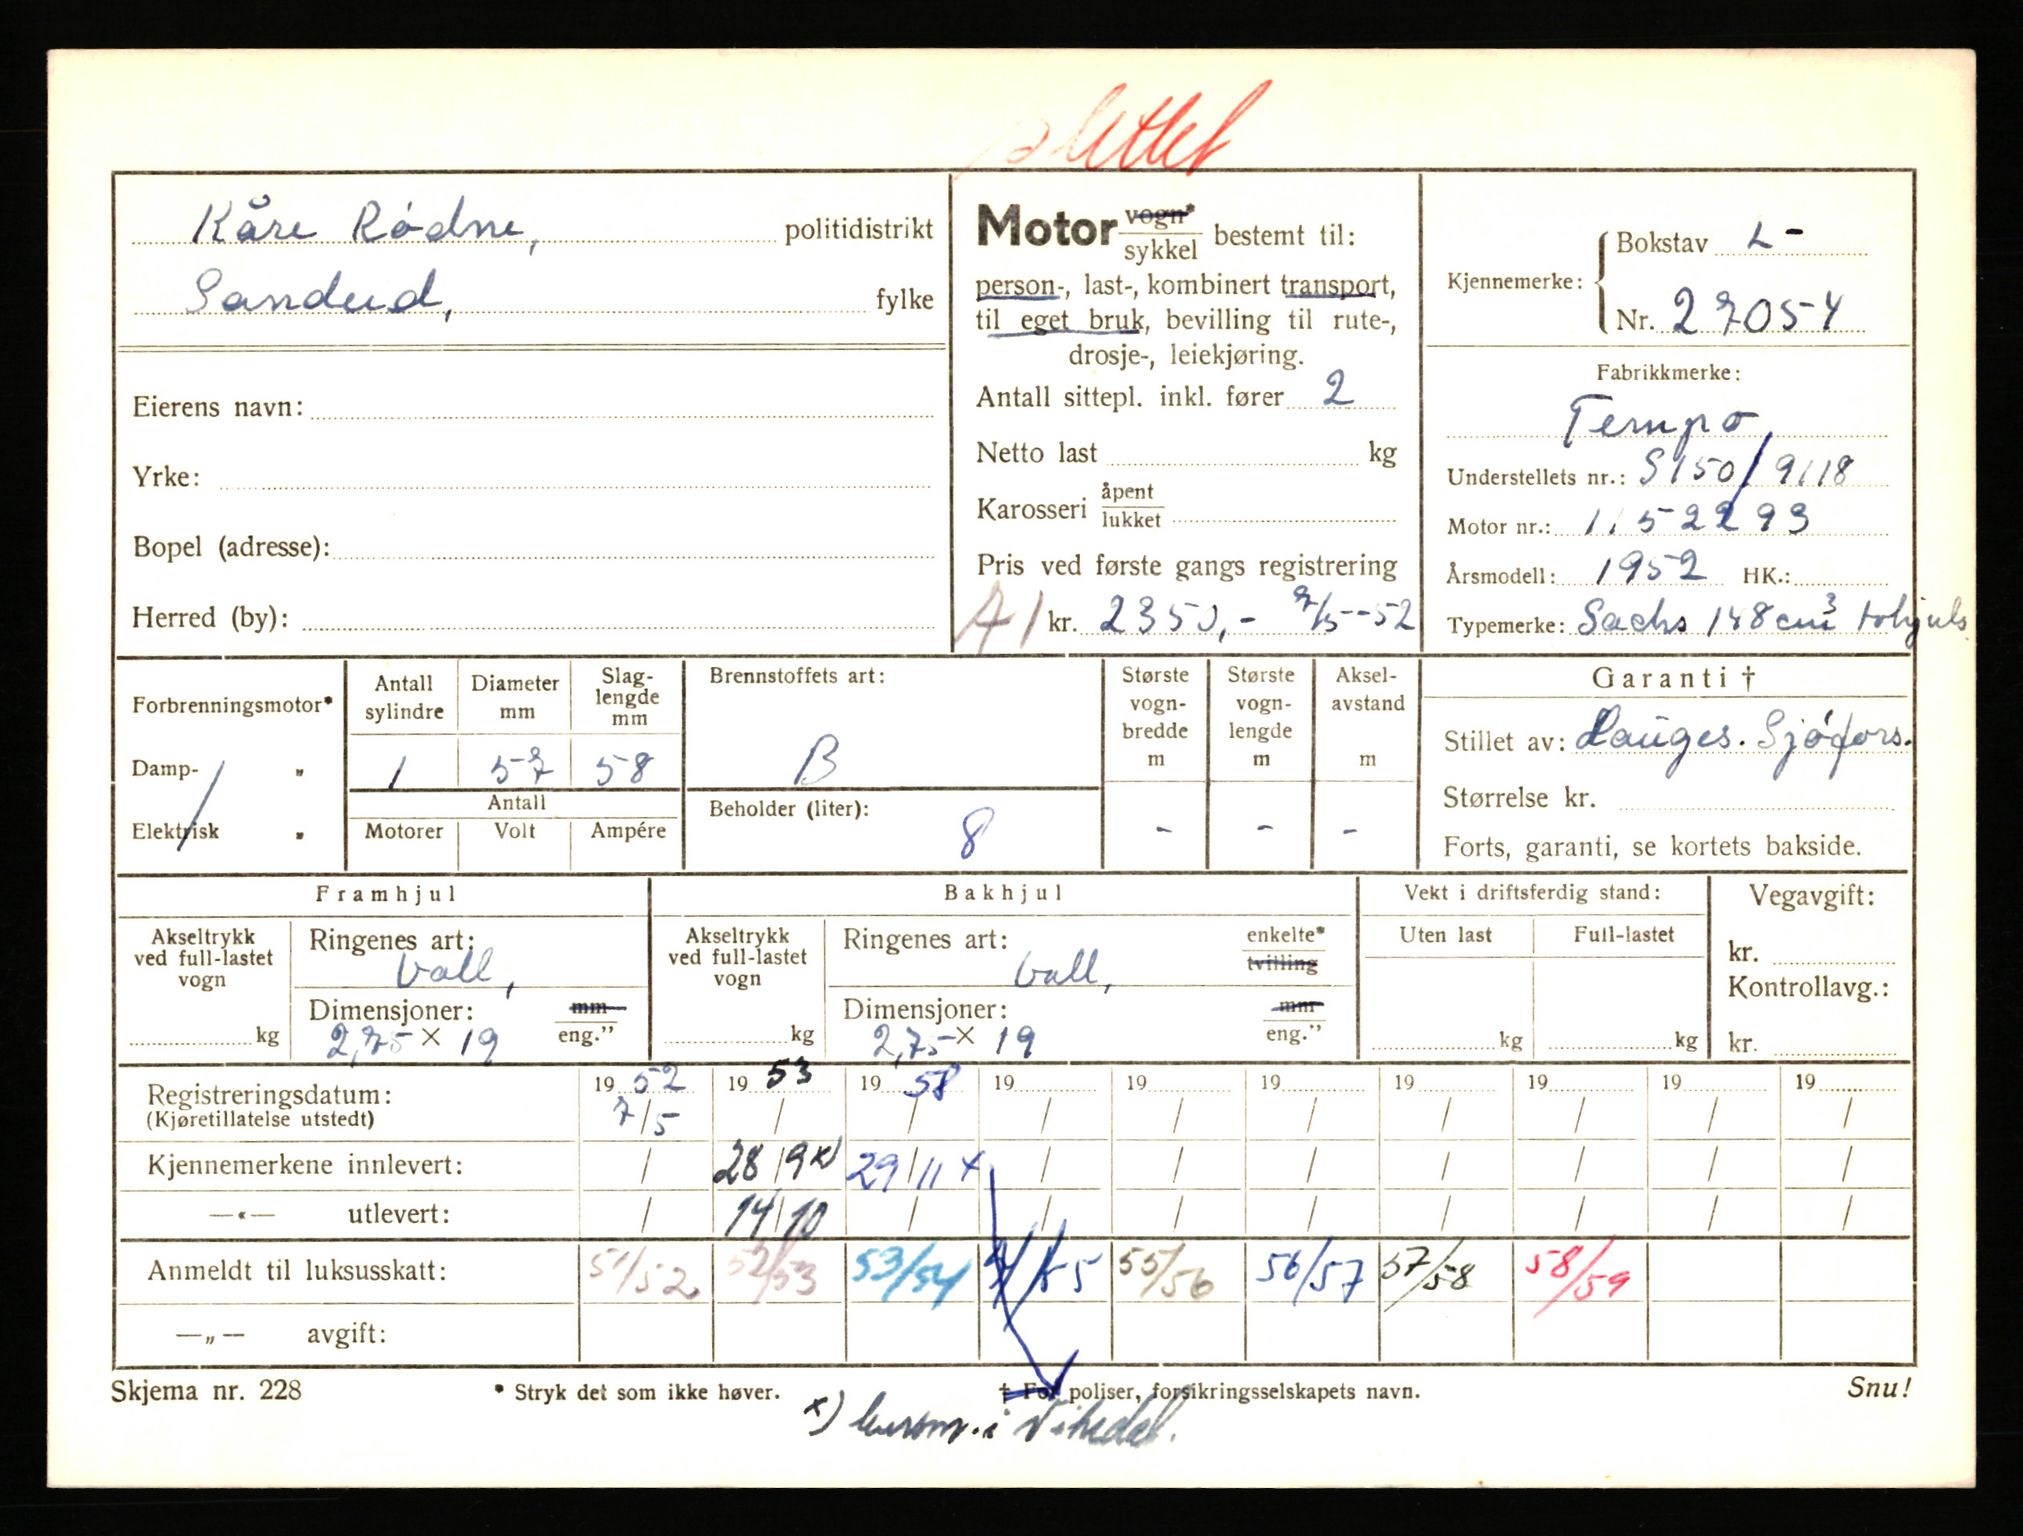 slettet
Kåre Rødne, politidistrikt
Sandeid, fylke
Eierens navn:
Yrke:
Bopel (adresse):
Herred (by):
Motor vogn* sykkel bestemt til:
person-, last-, kombinert transport,
til eget bruk, bevilling til rute-,
drosje-, leiekjøring.
Antall sittepl. inkl. fører 2
Netto last kg
Karosseri åpent lukket
Pris ved første gangs registrering
A1 kr. 2350,- 7/5-52
Kjennemerke:
Bokstav L-
Nr. 27054
Fabrikkmerke:
Tempo
Understellets nr.: S150/9118
Motor nr.: 1152293
Årsmodell: 1952 HK.:
Typemerke: Sachs 148 cm3 tohjuls
Forbrenningsmotor*
Damp- „
Elektrisk „
Antall sylindre
Diameter mm
Slag-lengde mm
1 57 58
Antall
Motorer Volt Ampére
Brennstoffets art:
B
Beholder (liter):
8
Største vogn-bredde m
Største vogn-lengde m
Aksel-avstand m
- - -
Garanti †
Stillet av: Hauges. Sjøfors.
Størrelse kr.
Forts, garanti, se kortets bakside.
Framhjul
Akseltrykk ved full-lastet vogn
kg
Ringenes art:
ball,
Dimensjoner: mm eng.”
2,75 x 19
Bakhjul
Akseltrykk ved full-lastet vogn
kg
Ringenes art: enkelte* tvilling
ball,
Dimensjoner: mm eng.”
2,75 x 19
Vekt i driftsferdig stand:
Uten last Full-lastet
kg kg
Vegavgift:
kr.
Kontrollavg.:
kr.
Registreringsdatum: 19 52 19 53 19 58 19 19 19 19 19 19 19
(Kjøretillatelse utstedt) 7/5 / / / / / / / / /
Kjennemerkene innlevert: / 28/9 x) 29/11 x / / / / / / /
—«— utlevert: / 14/10 / / / / / / / /
Anmeldt til luksusskatt: 51/52 52/53 53/54 54/55 55/56 56/57 57/58 58/59
—„— avgift:
Skjema nr. 228
* Stryk det som ikke høver.
† For poliser, forsikringsselskapets navn.
Snu!
x) i Vikedal.